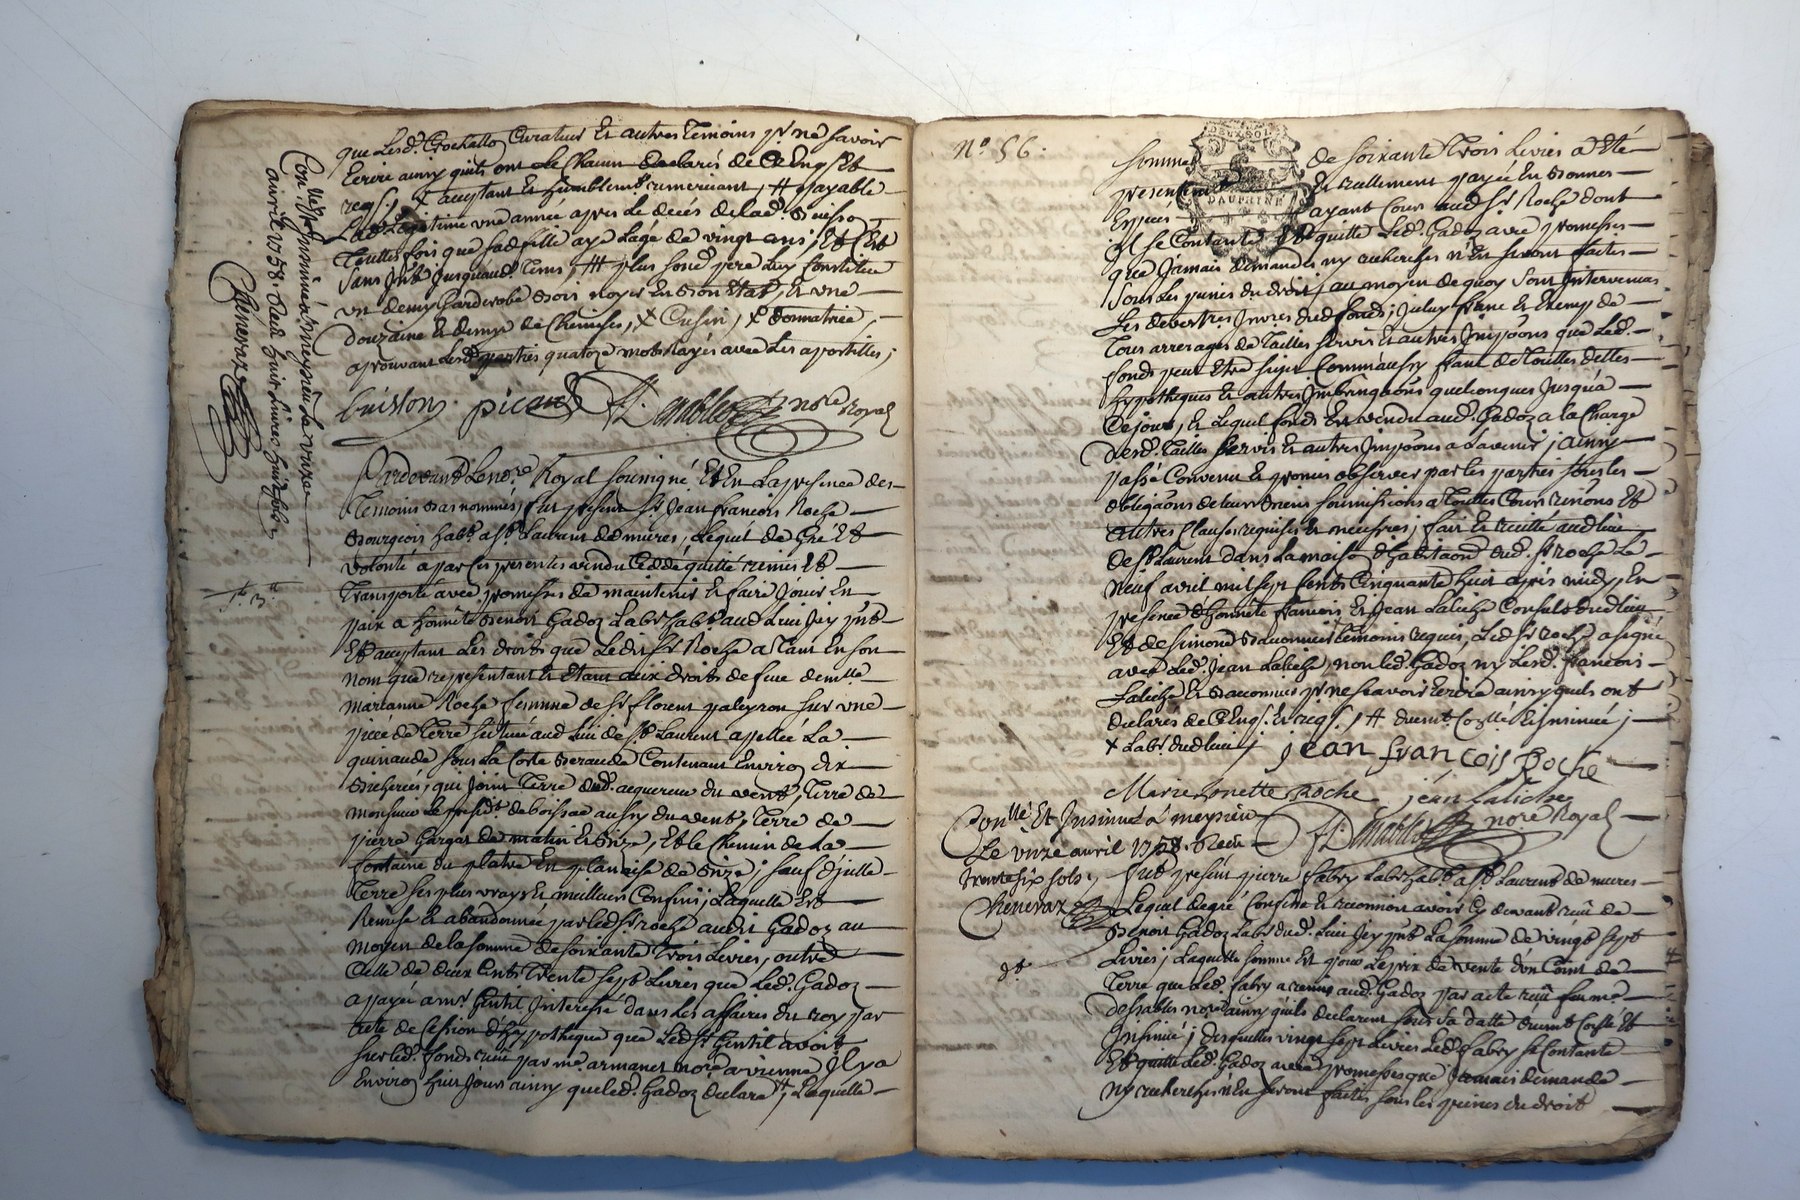 que Lesd. Cochatto Curateur Et autres Temoins pr ne Savoir
Ecrire ainsy quils ont Le Chacun Declarés de Ce Enqs Et
reqs / X acceptant Et humblemt. remerciant, # payable
Lad. Legitime une année apres Le deces de Lad.
Touttes fois que Sad. fille aye Lage de vingt ans, Et Et
Sans Jnts. Jusquaud. Tems, ## plus Sond. pere Luy Constitue
un demy garderobe Bois noyer En Bon Etat, Et une
Douzaine Et demye de Chemises, X Cusin, X Donnatrice,
aprouvant Lesd. parties quatorze mots Rayés avec Les apostilles;
buisson picard Danoble nore Royal
Controllé Et Jnsinué a meyzieu Le onze
avril 1758. Reçu huit Livres huit sols
Cheneraz
Pardevant Le nore. Royal Soussigné Et En La presence des
Temoins Bas nommés, fut present Sr. Jean francois Roche
Bourgeois habt. a St. Laurant de mures, Lequel de Gré Et
volonté a par Ces presentes vendu Cedé quitté remis Et
Transporté avec promesses de maintenir Et faire Jouir En
paix a honnete Benoit Gadoz Labr. habt. aud. Lieu Jcy pnt.
Et acceptant Les droits que Ledit Sr. Roche a Tant En Son
nom que representant Et Etant aux droits de feue demlle.
marianne Roche femme de Sr. florent paleyron Sur une
piece de Terre Scituée aud. Lieu de St. Laurent appellée La
guinaude Sous La Coste Beraude Contenant Environ dix
Bicherées, qui Joint Terre dud. acquereur du vent, Terre de
monsieur Le presidt. de boissac aussy du vent, Terre de
pierre Gargat de matin Et Bize, Et Le Chemin de La
fontaine du platre En de Bize, Sauf dJcelle
Terre Ses plus vrays Et meilleurs Confins, Laquelle Est
Remise Et abandonnée par Led. Sr. Roche audit Gadoz au
moyen de La Somme de Soixante Trois Livres, outre
Celle de deux Cents Trente Sept Livres que Led. Gadoz
a payée a mr. Gentil Jnteressé dans Les affaires du roy par
acte de Cession dhypotheque que Led. Sr. Gentil avoit
Sur Led. fonds reçu par me. armanet nore. a vienne Jl y a
Environ huit Jours ainsy que Led. Gadoz declare #, Laquelle
No. 56.
DEUX SOLS
DAUPHINÉ
Somme de Soixante Trois Livres a Eté
presentement Et reellement payée En Bonnes
Especes ayant Cours aud. Sr. Roche dont
Jl Se Contante Et quitte Led. Gadoz avec promesses
que Jamais demandes ny recherches n'En Seront faites
Sous Les peines du droit, au moyen de quoy Sont Jntervenus
Les devestres Jnvres. dud. fonds, Jceluy franc Et Exempt de
Tous arrerages de Tailles Servis Et autres Jmpoons. que Led.
fonds peut Etre Sujet Comm'aussy franc de Touttes dettes
hypotheques Et autres Jmbringaons. quelconques Jusqu'a
Ce jour, Et Lequel fonds Est vendu aud. Gadoz a La Charge
desd. Tailles Servis Et autres Jmpoons. a L'avenir, ainsy
passé Convenu Et promis observer par les parties Sous les
obligaons. de leurs Biens Soumissions a Touttes Cours renons. Et
autres Clauses requises Et necessres., fait Et recitté aud. Lieu
de St. Laurent dans La maison d'habitaon. dud. Sr. roche Le
neuf avril mil Sept Cents Cinquante huit apres midy, En
presence d'honnete francois Et Jean Laliche Consuls dud. Lieu
Et de Simond Baconnier Temoins requis, Led. Sr. roche a signé
avec Led. Jean Laliche, non Led. Gadoz ny Lesd. francois
Laliche Et Baconnier pr. ne Scavoir Ecrire ainsy quils ont
declarés de Ce Enqs. Et reqs. / # duemt. Collé. Et Jnsinuée,
X Labr. dud. Lieu,
jean francois Roche
Marie Roche jean laliche
Danoble nore Royal
Conllé. Et Jnsinué a meyzieu
Le onze avril 1758. Reçu
Trente Six Sols,
Cheneraz
Fut present pierre fabry Labr. habt. a St. Laurent de mures
Lequel de gré Confesse Et reconnoit avoir Cy devant reçu de
Benoit Gadoz Labr. dud. Lieu Jcy pnt. La Somme de vingt Sept
Livres, Laquelle Somme Est pour Le prix de vente d'un Coin de
Terre que Led. fabry a remis aud. Gadoz par acte reçu feu me.
desables nore. ainsy quils declarent Sous Sa datte duemt. Collé. Et
Jnsinué, desquelles vingt Sept Livres Led. fabry Se Contante
Et quitte Led. Gadoz avec promesses que Jamais demande
ny recherches n'En Seront faites Sous Les peines du droit